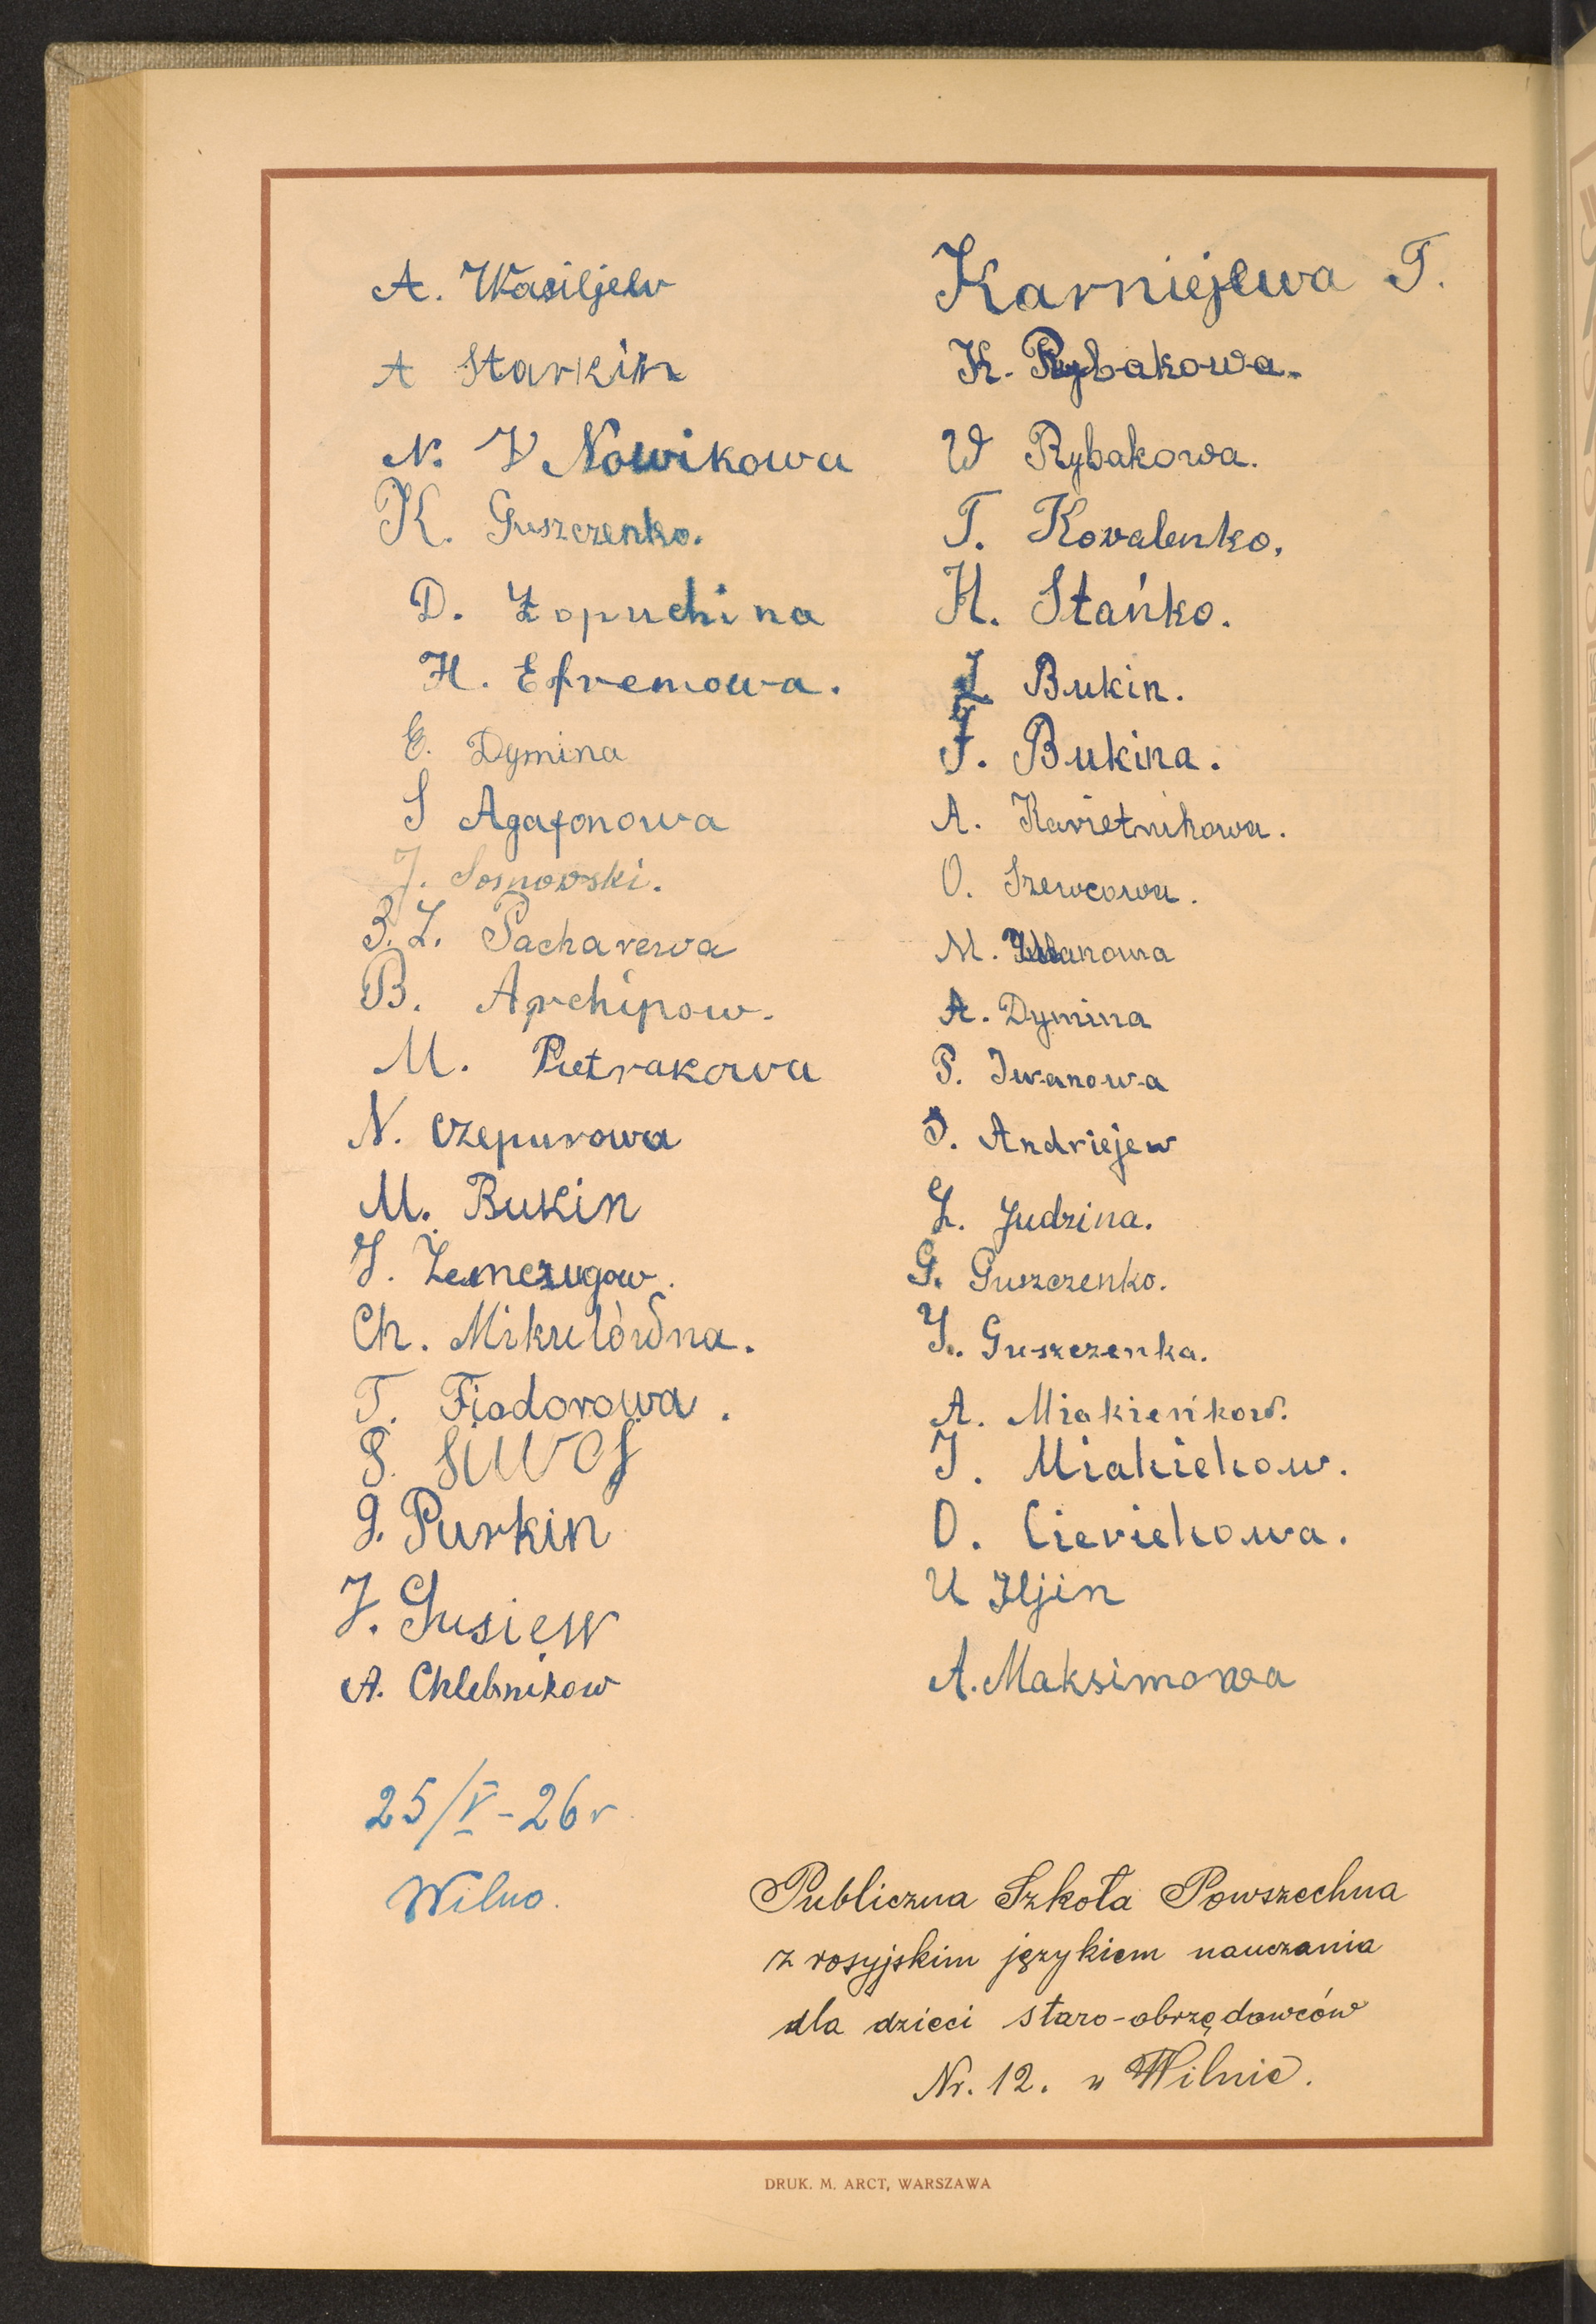 A. Wasiljew
A Starkin
N. Nowikowa
K. Guszczenko.
D. Łopuchina
H. Efremowa.
E. Dymina
S Agafonowa
J. Sosnowski.
Z. Pacharewa
B. Archipow.
M. Pietrakowa
N. Czepurowa
M. Bukin
J. Żemczugow.
Ch. Mikulówna.
T. Fiodorowa.
P.
J. Purkin
J. Gusiew
A. Chlebnikow
25/V-26 r
Wilno.
Karniejewa T.
K. Rybakowa.
W Rybakowa.
T. Kovalenko.
H. Stańko.
Bukin.
F. Bukina.
A. Kavietnikowa.
O. Szewcowa.
M.
A. Dymina
P. Iwanowa
J. Andriejew
Z. Judzina.
G. Guszczenko.
J. Guszczenka.
A. Miakieńkow.
J. Miakiekow.
O. Cieriekowa.
U Iljin
A. Maksimowa
Publiczna Szkoła Powszechna
z rosyjskim językiem nauczania
dla dzieci staro-obrzędowców
Nr. 12. w Wilnie.
DRUK. M. ARCT, WARSZAWA